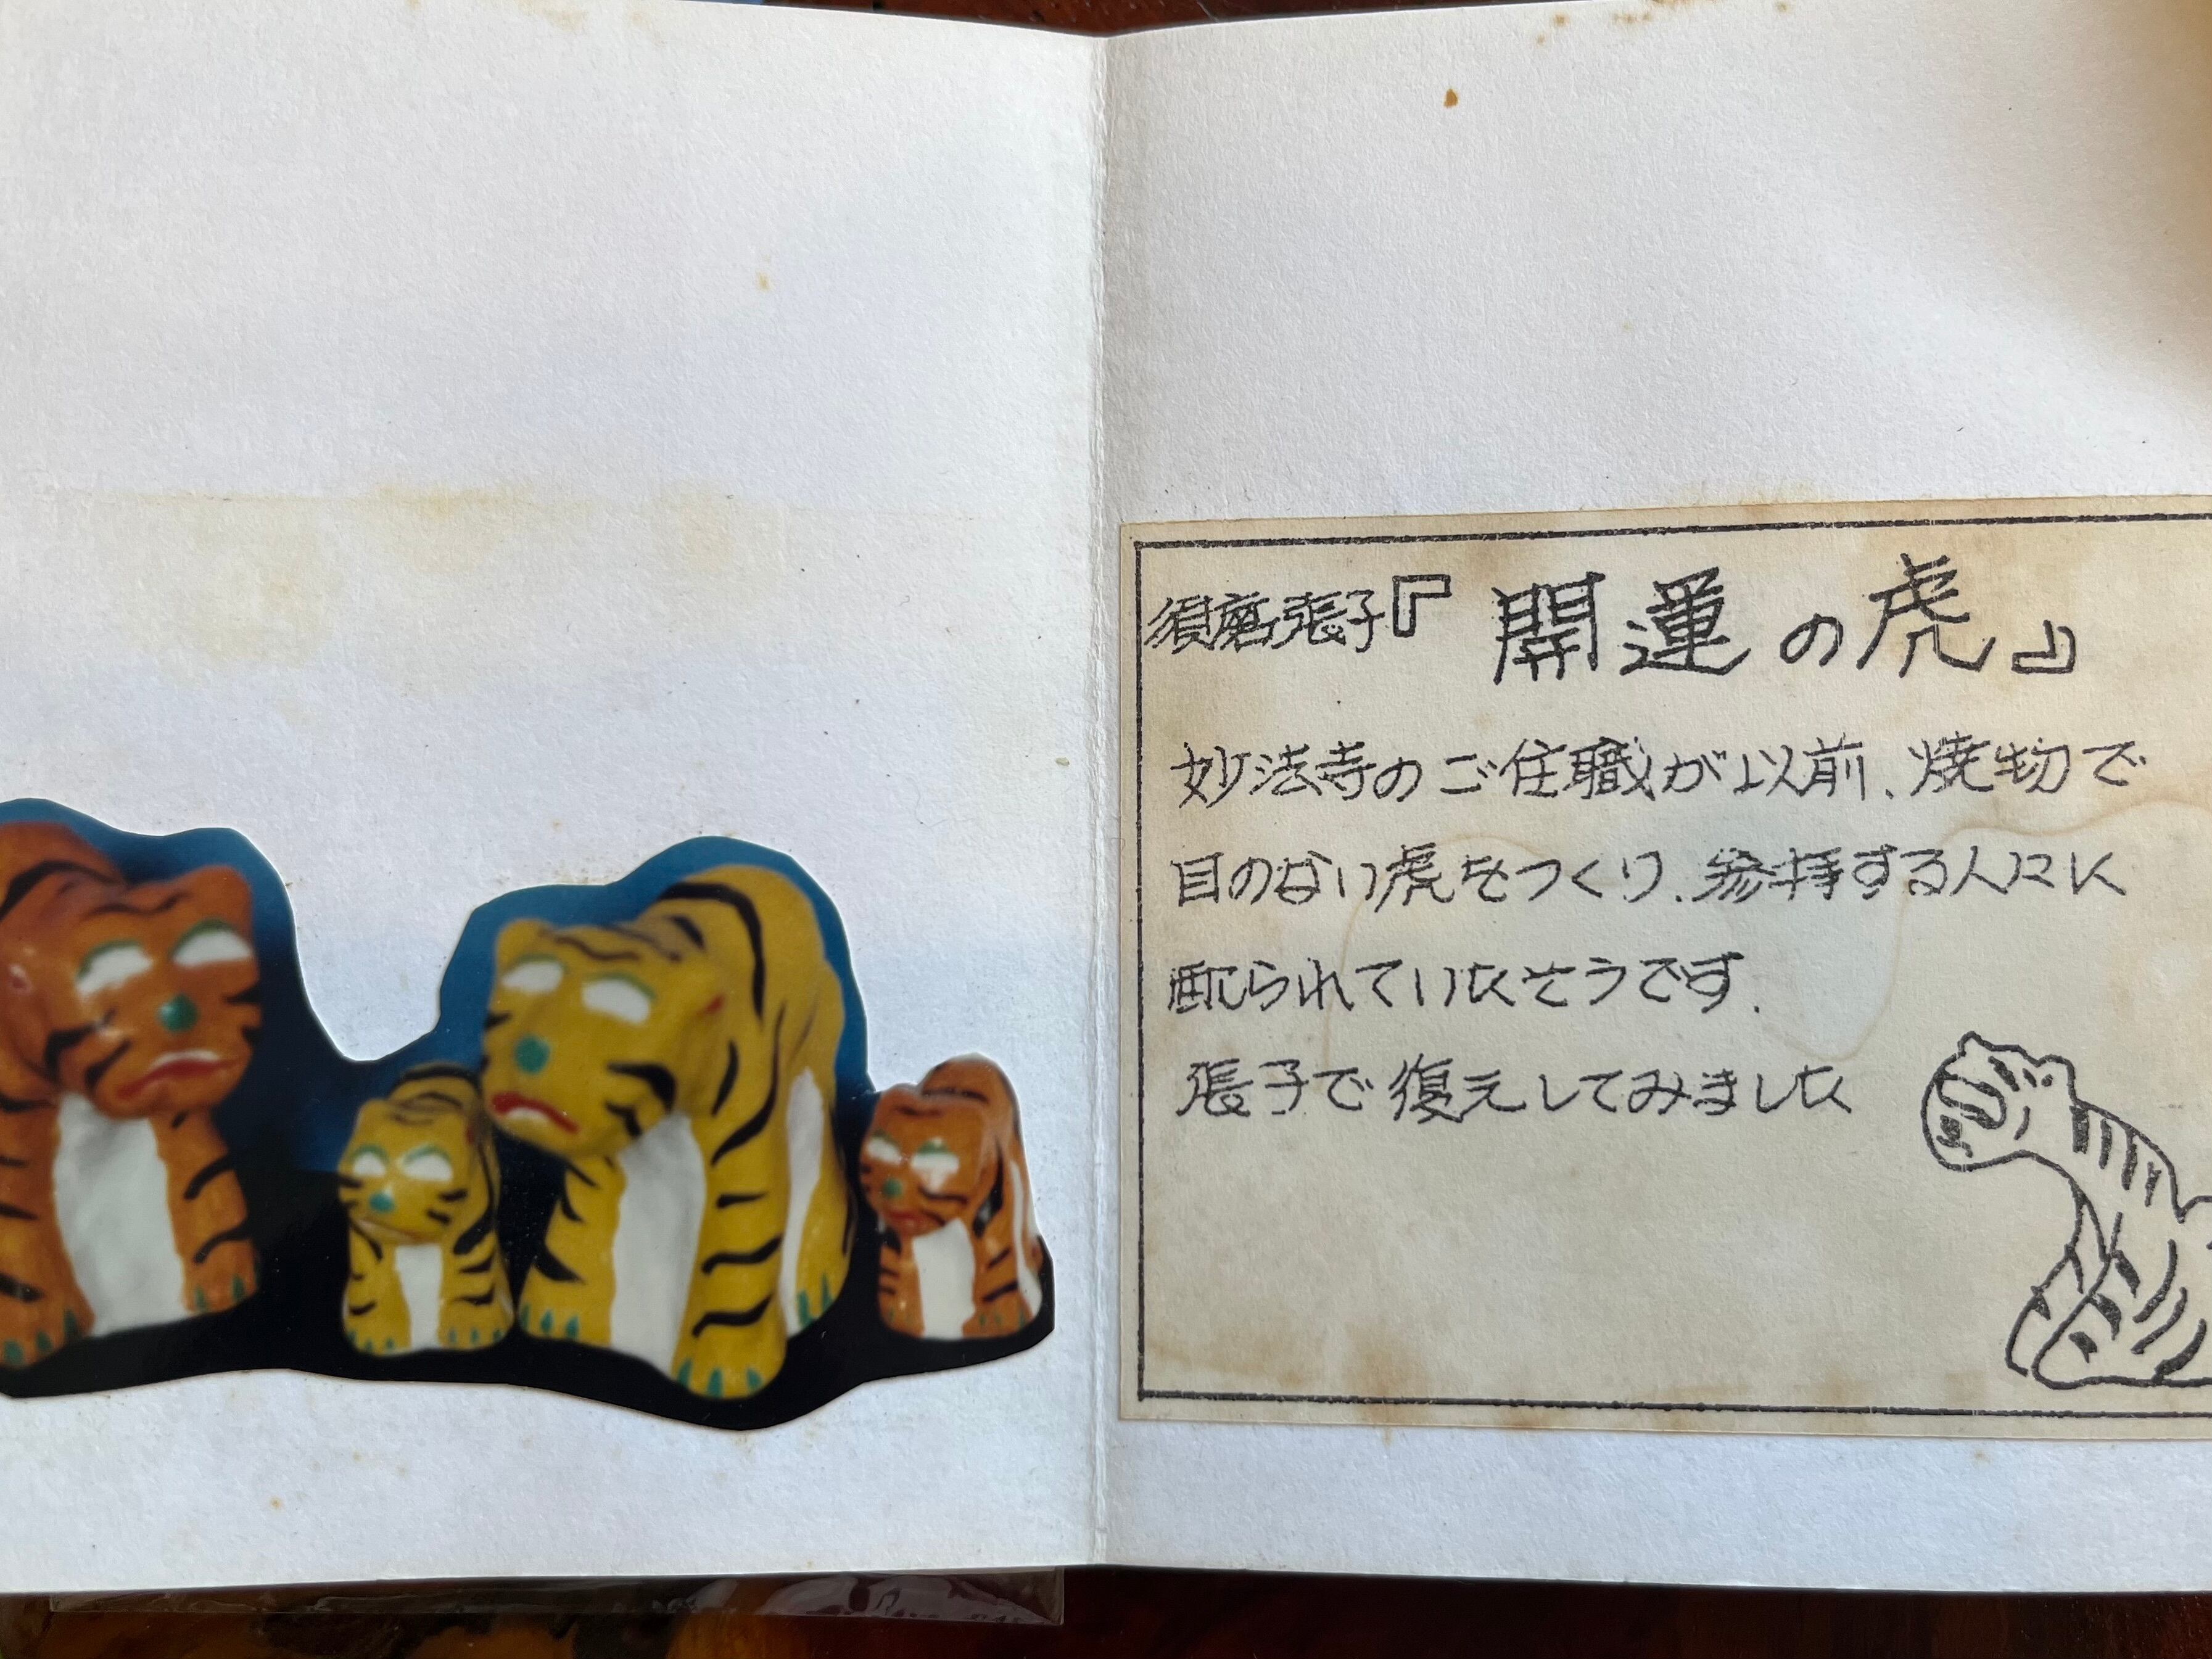 須磨張子『開運の虎』
妙法寺のご住職が以前、焼物で
目のない虎をつくり、参拝する人々に
配られていたそうです。
張子で復元してみました